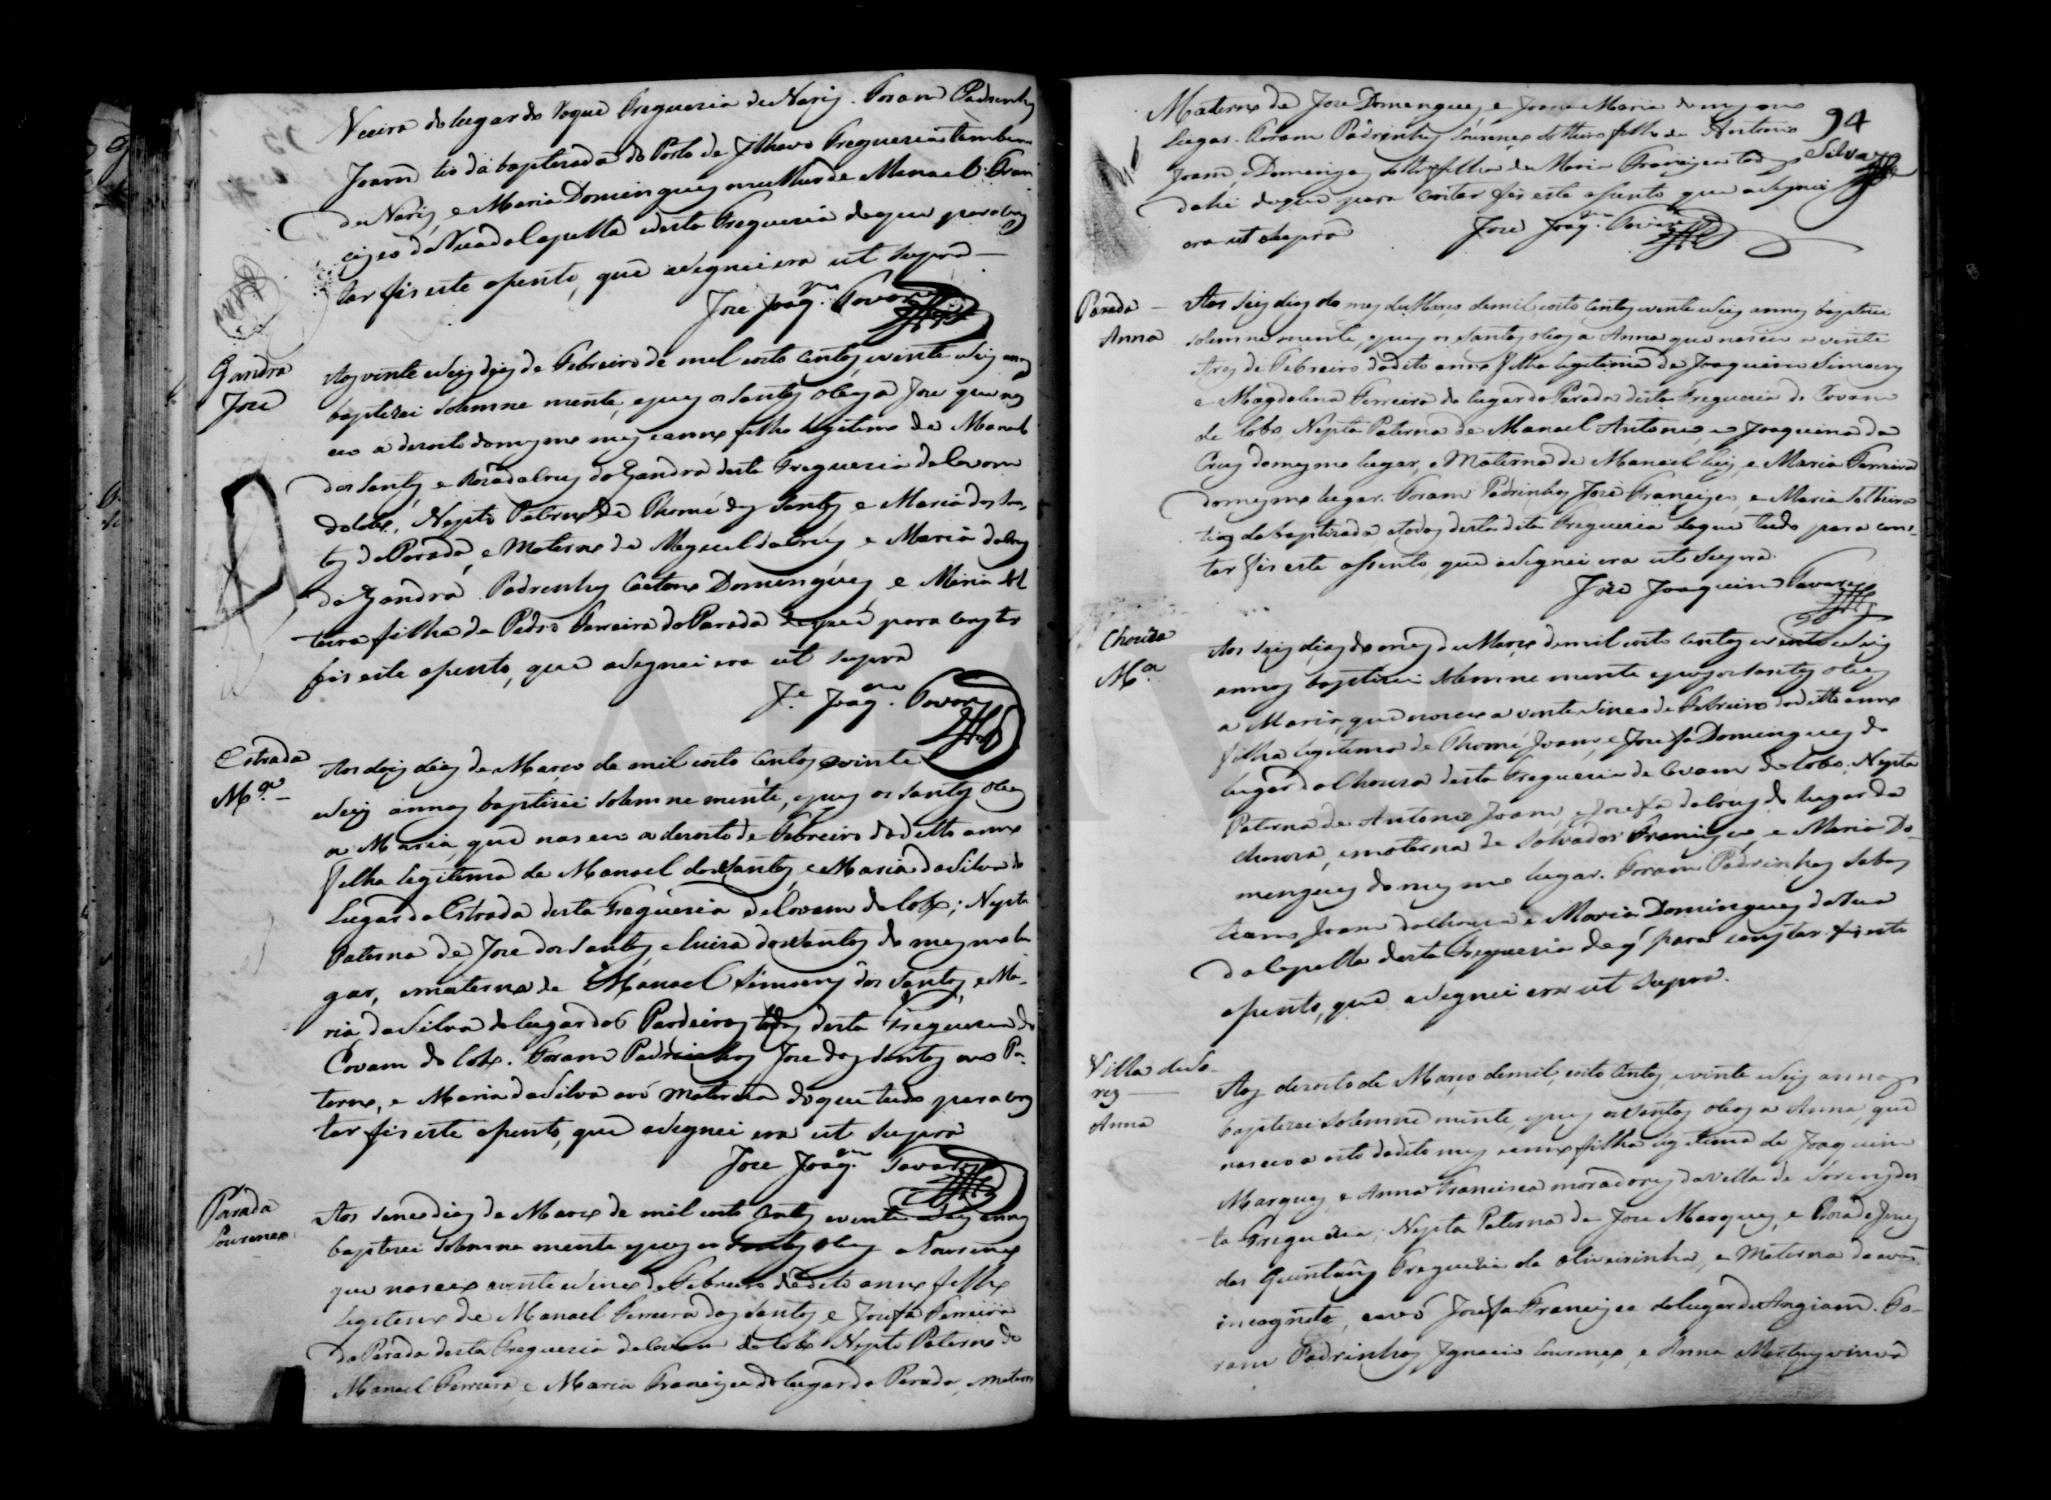 Vieira do lugar do Roque Freguesia de Nariz. Foram Padrinhos
Joam tio da baptizada do Porto de Ilhavo Freguesia tambem
de Nariz, e Maria Domingues mulher de Manoel Fran
cisco da Rua da Capella desta Freguesia de que para cons
tar fis este asento, que asignei era ut supra
Joze Joaq.m Tavares
Gandra
Joze
Aos vinte e seis dias de Febreiro de mil oito centos e vinte e seis annos
baptizei solemne mente, e puz os santos oleos a Joze que nas
ceo a dezoito do mesmo mez e anno filho legitimo de Manoel
dos Santos, e Roza da Cruz da Gandra desta Freguesia de Covam
do Lobo, Nepto Paterno de Thomé dos Santos, e Maria dos San
tos da Parada, e Materno de Miguel da Cruz, e Maria da Cruz
da Gandra Padrinhos Caetano Domingues, e Maria sol
teira filha de Pedro Ferreira da Parada de que para constar
fis este asento, que asignei era ut supra
J.e Joaq.m Tavares
Estrada
M.a
Aos dois dias de Março de mil oito centos e vinte
e seis annos baptizei solemne mente, e puz os santos oleos
a Maria, que nasceo a dezoito de Febreiro do ditto anno
filha legitima de Manoel dos Santos, e Maria da Silva do
Lugar da Estrada desta Freguesia de Covam do Lobo; Nepta
Paterna de Joze dos Santos, e Luiza dos Santos do mesmo lu
gar, e materna de Manoel Simoens dos Santos, e Ma-
ria da Silva do lugar dos Pardeiros todos desta Freguesia de
Covam do Lobo. Foram Padrinhos Joze dos Santos avo Pa-
terno, e Maria da Silva avó Materna do que tudo para cons
tar fis este asento, que asignei era ut supra
Joze Joaq.m Tavares
Parada
Lourenço
Aos sinco dias de Março de mil oito centos e vinte e seis annos
baptizei solemne mente e puz os santos oleos a Lourenço
que nasceo a vinte e sinco de Febreiro do dito anno filho
legitimo de Manoel Ferreira dos Santos, e Josefa Ferreira
da Parada desta Freguesia de Covam do Lobo Nepto Paterno de
Manoel Ferreira e Maria Francisca do lugar da Parada, e materno
94
Materno de Joze Domingues, e Joana Maria do mesmo
lugar. Foram Padrinhos Lourenço solteiro filho de Antonio
Joam, e Domingas solteira filha de Maria Francisca todos
Silva
dahi do que para constar fis este asento que asignei
era ut supra
Joze Joaq.m Tavares
Parada
Anna
Aos seis dias do mez de Março de mil oito centos e vinte e seis annos baptizei
solemne mente, e puz os santos oleos a Anna que nasceo a vinte
e tres de Febreiro do dito anno filha legitima de Joaquim Simoens
e Magdalena Ferreira do lugar da Parada desta Freguesia de Covam
do Lobo, Nepta Paterna de Manoel Antonio, e Joaquina da
Cruz do mesmo lugar, e Materna de Manoel Luiz, e Maria Ferreira
do mesmo lugar. Foram Padrinhos Joze Francisco, e Maria solteira
tios da baptizada e todos desta dita Freguesia do que tudo para cons-
tar fis este asento, que asignei era ut supra.
Joze Joaquim Tavares
Chouza
M.a
Aos seis dias do mez de Março de mil oito centos e vinte e seis
annos baptizei solemne mente e puz os santos oleos
a Maria, que nasceo a vinte e sinco de Febreiro do ditto anno
filha legitima de Thomé Joam, e Josefa Domingues do
lugar da Chouza desta Freguesia de Covam do Lobo, Nepta
Paterna de Antonio Joam, e Josefa da Cruz do lugar da
Chouza, e materna de Salvador Francisco, e Maria Do-
mingues do mesmo lugar. Foram Padrinhos Sebas
tiam Joam da Chouza e Maria Domingues da Rua
da Capella desta Freguesia de q' para constar fis este
asento, que asignei era ut supra.
Villa de So-
rez
Anna
Aos dezoito de Março de mil, oito centos, e vinte e seis annos
baptizei solemne mente, e puz os santos oleos a Anna, que
nasceo a oito do dito mez e anno filha legitima de Joaquim
Marques, e Anna Francisca moradores da Villa de Sorens des
ta Freguesia, Nepta Paterna de Joze Marques, e Roza de Jesus
das Quintans Freguesia da Oliveirinha, e Materna de avó
incognito, e avó Josefa Francisca do lugar de Angiam. Fo-
ram Padrinhos Ignacio Lourenço, e Anna Martins viuva